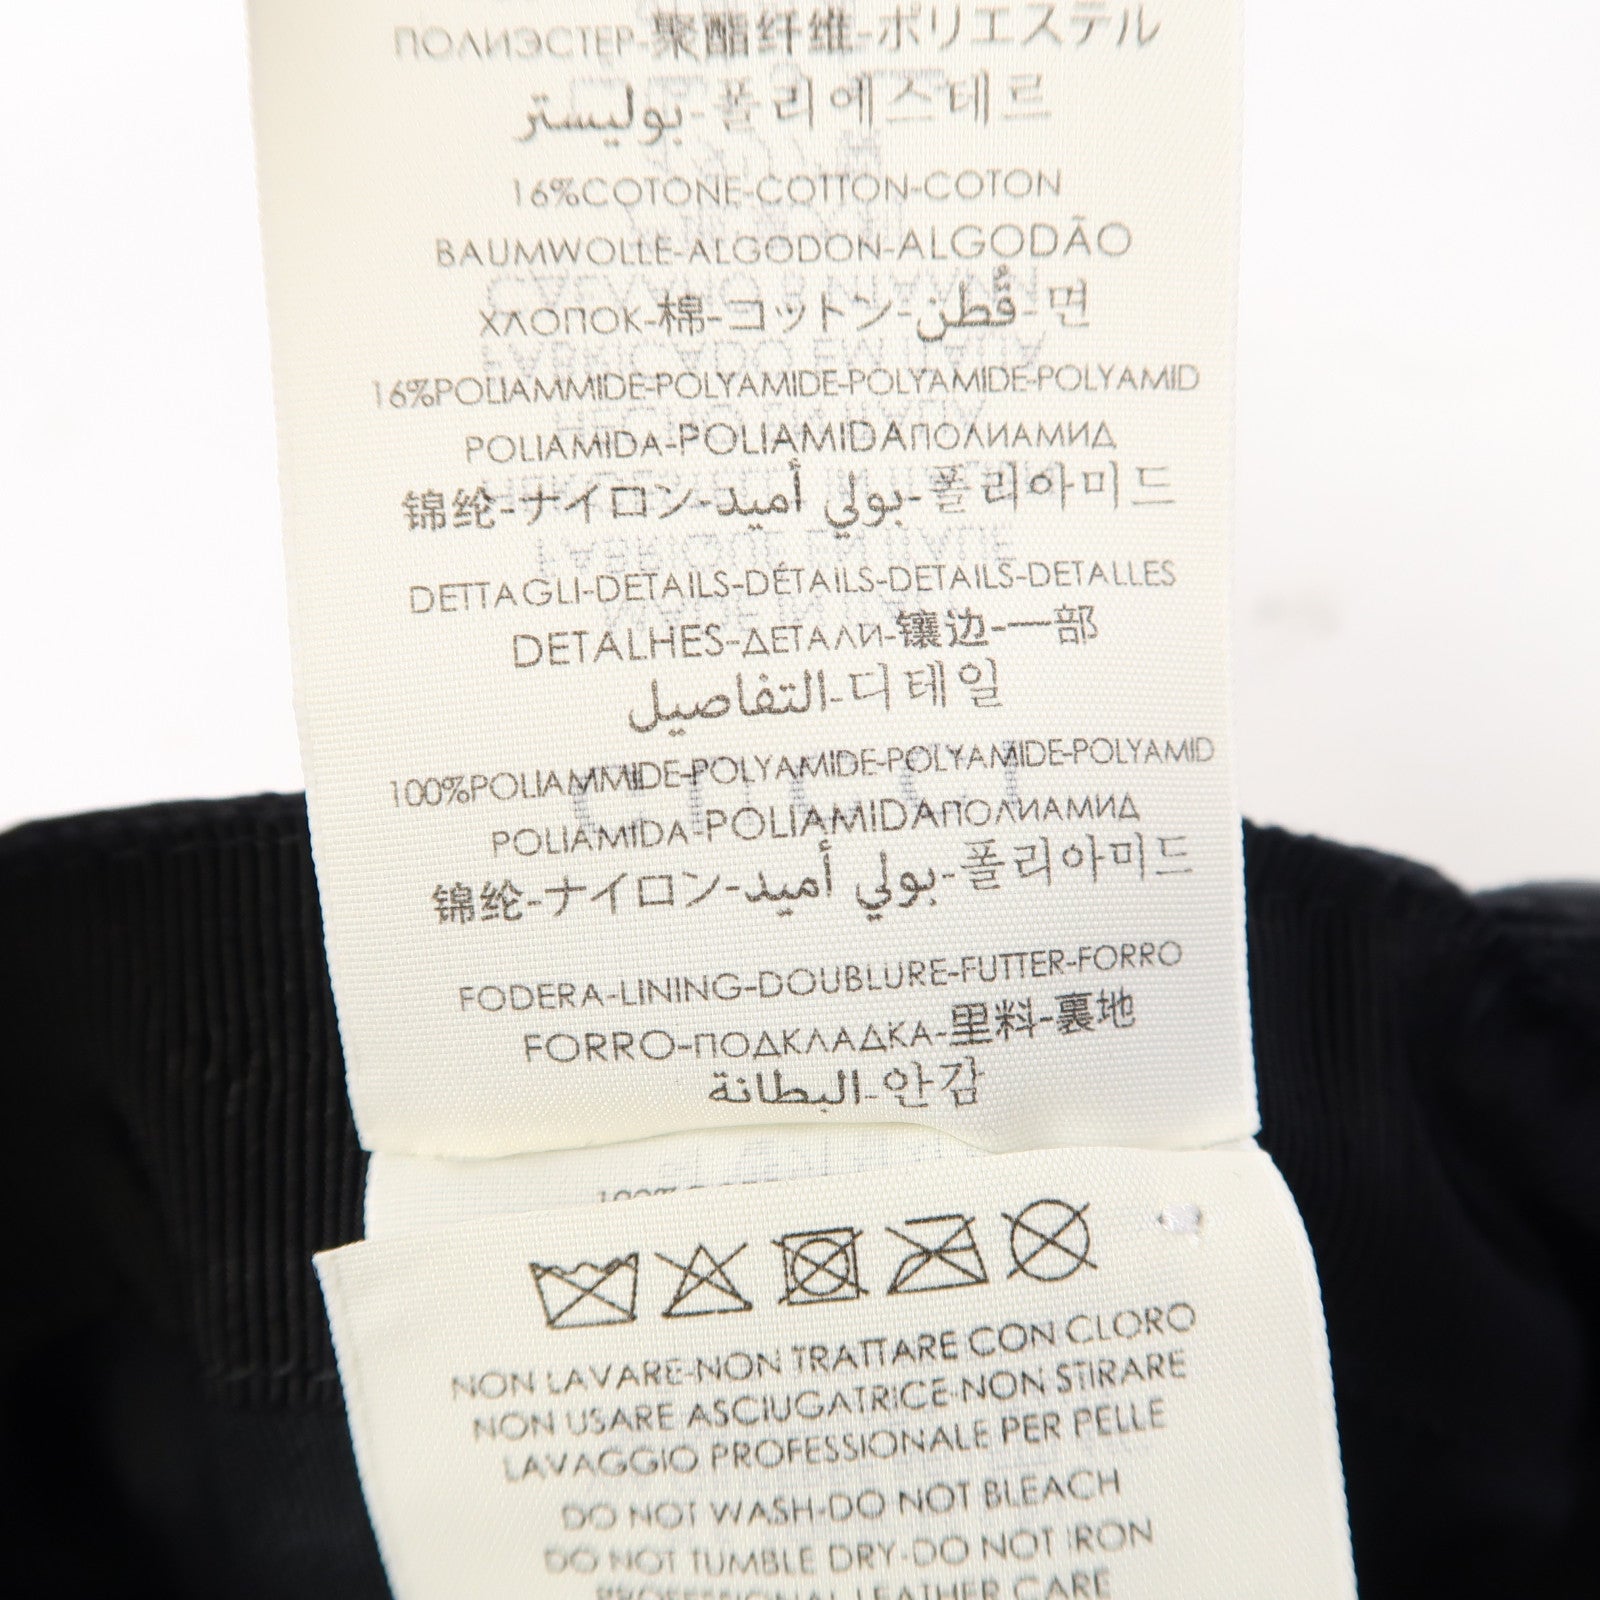 ПОЛИЭСТЕР-聚酯纤维-ポリエステル
بوليستر-폴리에스테르
16%COTONE-COTTON-COTON
BAUMWOLLE-ALGODON-ALGODÃO
ХЛОПОК-棉-コットン-قُطن-면
16%POLIAMMIDE-POLYAMIDE-POLYAMIDE-POLYAMID
POLIAMIDA-POLIAMIDAПОЛИАМИД
锦纶-ナイロン-بولي أميد-폴리아미드
DETTAGLI-DETAILS-DÉTAILS-DETAILS-DETALLES
DETALHES-ДЕТАЛИ-镶边-一部
التفاصيل-디테일
100%POLIAMMIDE-POLYAMIDE-POLYAMIDE-POLYAMID
POLIAMIDA-POLIAMIDAПОЛИАМИД
锦纶-ナイロン-بولي أميد-폴리아미드
FODERA-LINING-DOUBLURE-FUTTER-FORRO
FORRO-ПОДКЛАДКА-里料-裏地
البطانة-안감
NON LAVARE-NON TRATTARE CON CLORO
NON USARE ASCIUGATRICE-NON STIRARE
LAVAGGIO PROFESSIONALE PER PELLE
DO NOT WASH-DO NOT BLEACH
DO NOT TUMBLE DRY-DO NOT IRON
PROFESSIONAL LEATHER CARE